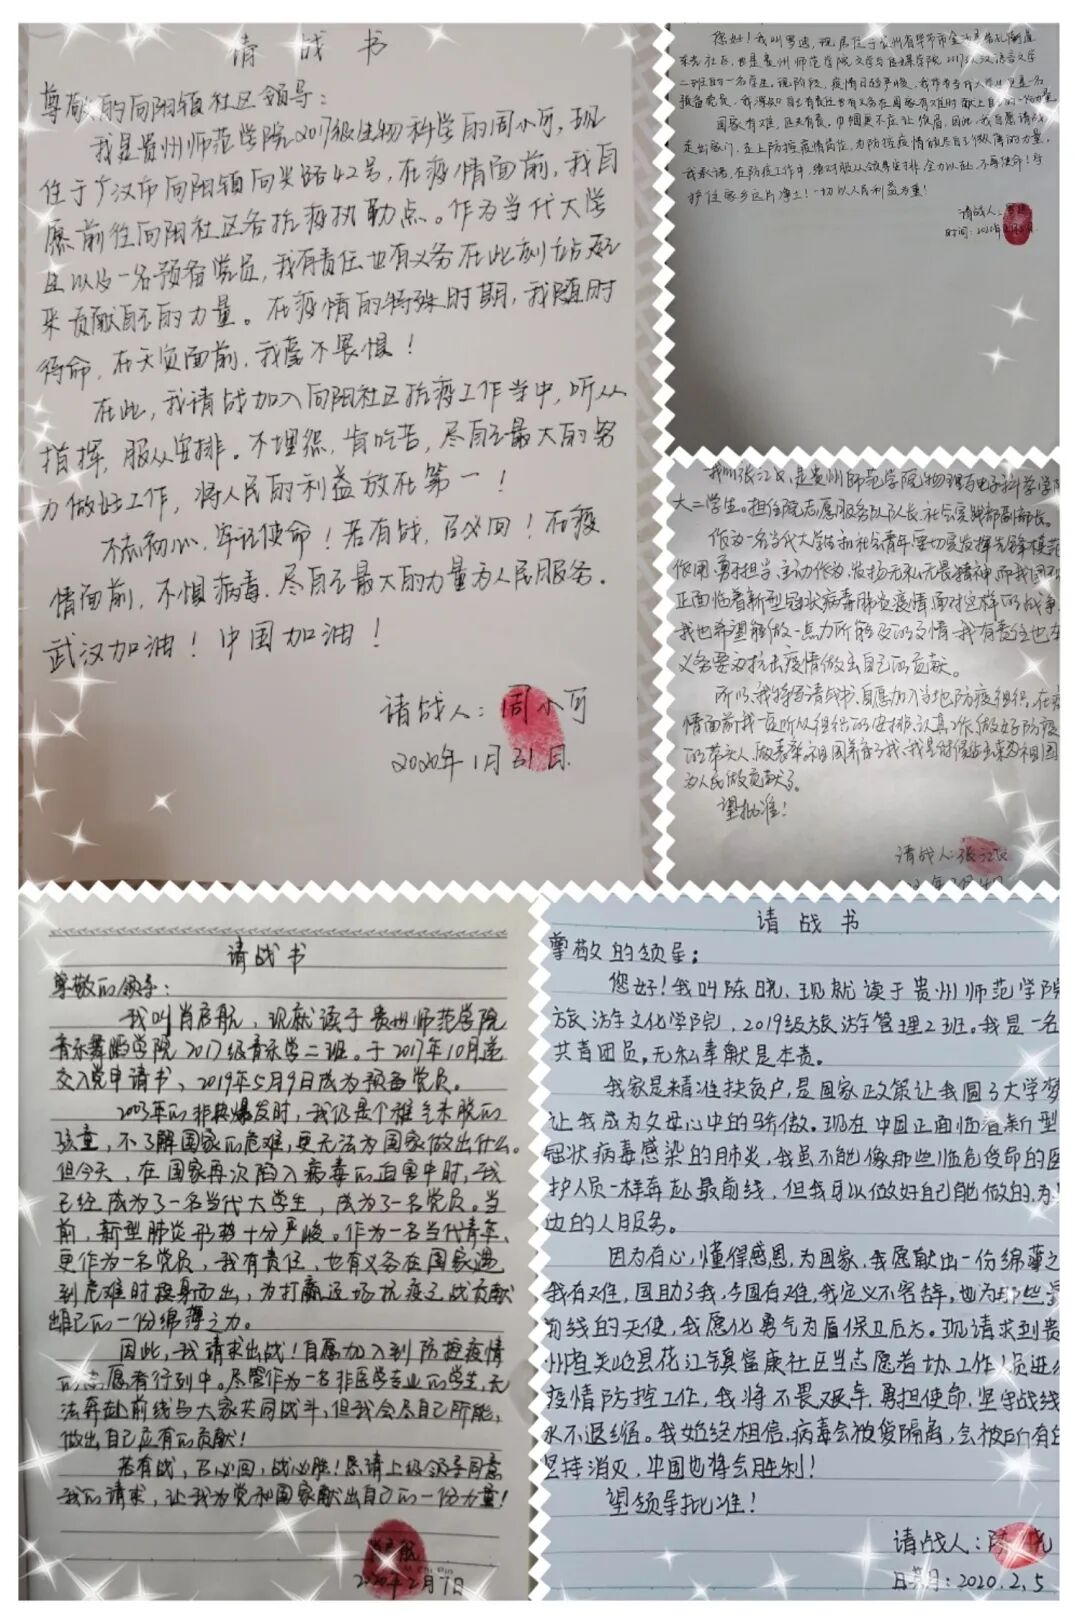 请战书
尊敬的向阳镇社区领导：
我是贵州师范学院2017级生物科学的周小可，现
住于广汉市向阳镇向兴路42号，在疫情面前，我自
愿前往向阳社区各抗疫执勤点。作为当代大学
生以及一名预备党员，我有责任也有义务在此刻站起
来贡献自己的力量。在疫情的特殊时期，我随时
待命，在灾灾面前，我毫不畏惧！
在此，我请战加入向阳社区抗疫工作当中，听从
指挥，服从安排。不埋怨，肯吃苦，尽自己最大的努
力做好工作，将人民的利益放在第一！
不忘初心，牢记使命！若有战，召必回！在疫
情面前，不惧病毒，尽自己最大的力量为人民服务。
武汉加油！中国加油！
请战人：周小可
2020年1月31日
您好！我叫罗，现居住于贵州省毕节市金沙县
社区，也是贵州师范学院文学与传媒学院2017级汉语言文学
二班的一名学生，现阶段，疫情日益严峻，我作为当代大学生更是一名
预备党员，我深知自己有责任也有义务在国家有难时献上自己的一份力量。
国家有难，匹夫有责，巾帼更不应让须眉，因此，我自愿请战
走出家门，走上防控疫情岗位，为防控疫情做尽自己微薄的力量，
我承诺，在防控工作中，绝对服从领导安排，全力以赴，不辱使命！守
护住家乡这片净土！一切以人民利益为重！
请战人：罗
时间：2020年
我叫张江，是贵州师范学院物理与电子科学学院
大二学生。担任院志愿服务队队长、社会实践部副部长。
作为一名当代大学生和社会青年，要切实发挥先锋模范
作用、勇于担当、主动作为、发扬无私无畏精神，而我国
正面临着新型冠状病毒肺炎疫情，面对这样的战争，
我也希望能做一点力所能及的事情，我有责任也有
义务要为抗击疫情做出自己的贡献。
所以，我特写请战书，自愿加入当地防疫组织，在疫
情面前我一定听从组织的安排，认真工作，做好防疫
的带头人，做表率，祖国养育了我，我是时候站出来为祖国
为人民做贡献了。
望批准！
请战人：张江
请战书
尊敬的领导：
我叫肖启航，现就读于贵州师范学院
音乐舞蹈学院2017级音乐学二班。于2017年10月递
交入党申请书、2019年5月9日成为预备党员。
2003年的非典爆发时，我仍是个稚气未脱的
孩童，不了解国家的危难，更无法为国家做出什么。
但今天，在国家再次陷入病毒的迫害中时，我
已经成为了一名当代大学生，成为了一名党员。当
前，新型肺炎形势十分严峻。作为一名当代青年，
更作为一名党员，我有责任，也有义务在国家遇
到危难时挺身而出，为打赢这场抗疫之战贡献
出自己的一份绵薄之力。
因此，我请求出战！自愿加入到防控疫情
的志愿者行列中。尽管作为一名非医学专业的学生，无
法奔赴前线与大家共同战斗，但我会尽自己所能，
做出自己应有的贡献！
若有战，召必回，战必胜！恳请上级领导同意
我的请求，让我为党和国家献出自己的一份力量！
航
2020年2月1日
请战书
尊敬的领导：
您好！我叫陈晓，现就读于贵州师范学院
旅游文化学院，2019级旅游管理2班。我是一名
共青团员。无私奉献是本责。
我家是精准扶贫户，是国家政策让我圆了大学梦
让我成为父母心中的骄傲。现在中国正面临着新型
冠状病毒感染的肺炎，我虽不能像那些临危受命的医
护人员一样奔赴最前线，但我可以做好自己能做的，为
边的人服务。
因为有心，懂得感恩，为国家，我愿献出一份绵薄之
我有难，国助了我，今国有难，我定义不容辞，也为那些最
前线的天使，我愿化勇气为盾保卫后方。现请求到贵
州省关岭县花江镇富康社区当志愿者协工作人员进行
疫情防控工作，我将不畏艰辛，勇担使命，坚守战线
永不退缩。我始终相信，病毒会被爱隔离，会被所有的
坚持消灭，中国也将会胜利！
望领导批准！
请战人：陈晓
日期：2020.2.5